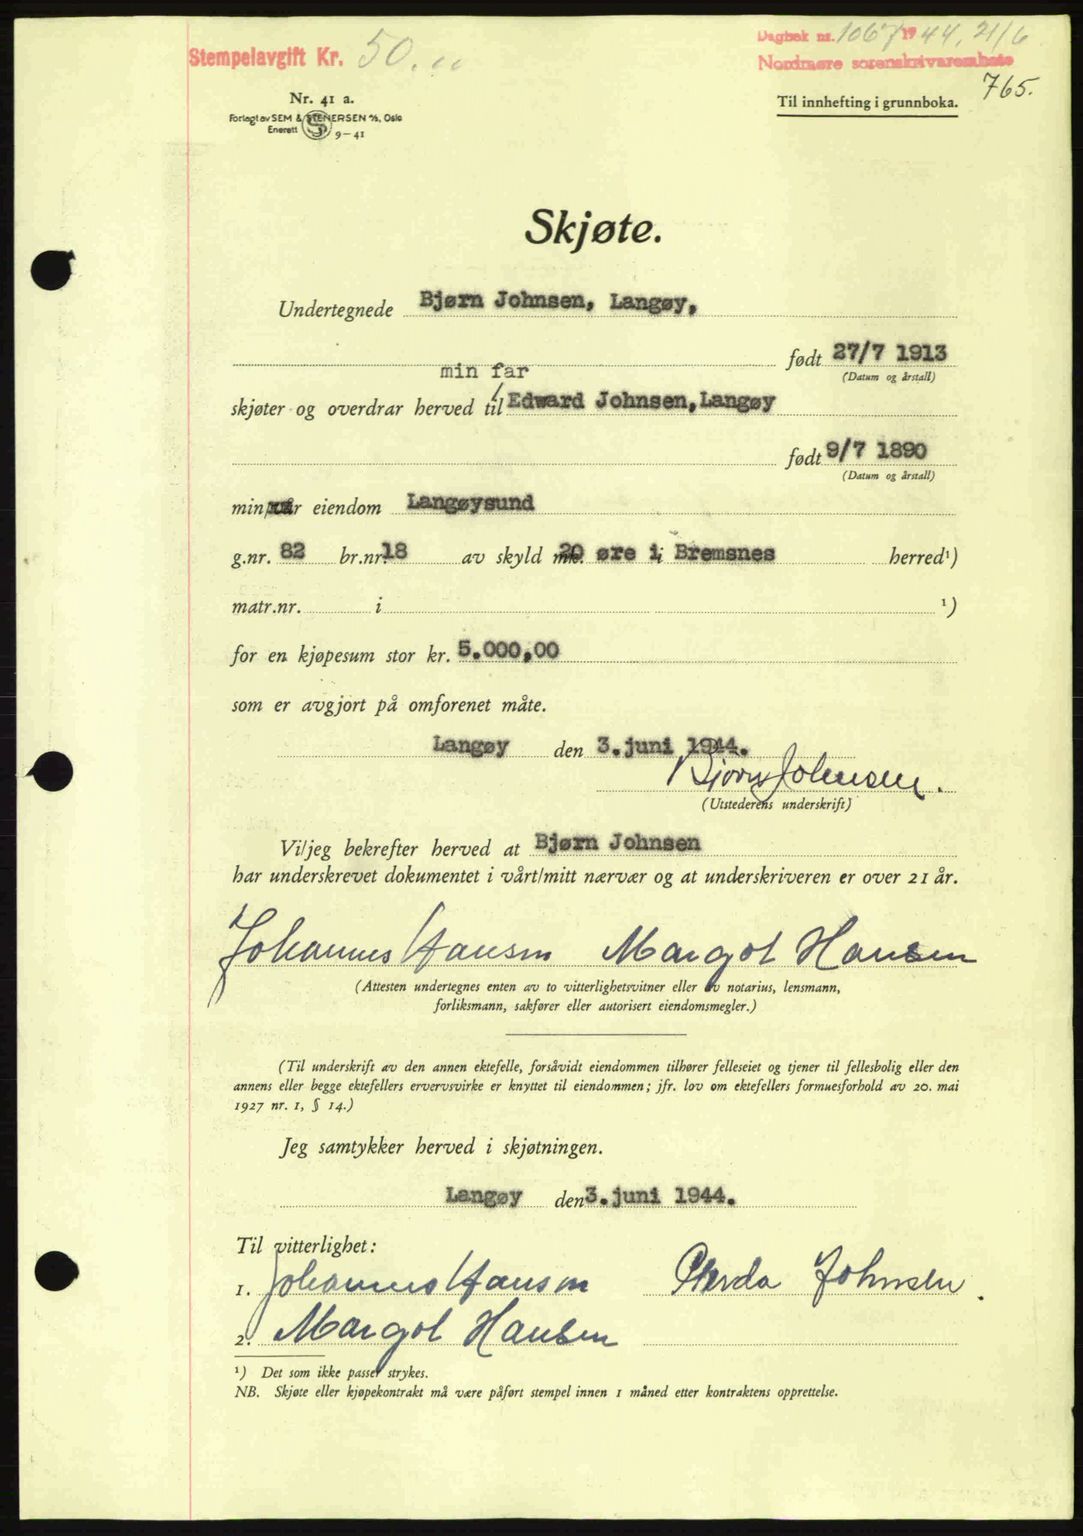 Stempelavgift Kr. 50.
Dagbok nr. 1067 1944, 21/6
Nordmøre sorenskriverembete
765.
Til innhefting i grunnboka.
Nr. 41 a.
Forlagt av SEM & STENERSEN A/S, Oslo
Enerett 9-41
Skjøte.
Undertegnede Bjørn Johnsen, Langøy,
født 27/7 1913
(Datum og årstall)
min far
skjøter og overdrar herved til / Edward Johnsen, Langøy
født 9/7 1890
(Datum og årstall)
min/vår eiendom Langøysund
g.nr. 82 br.nr. 18 av skyld mk. 20 øre i Bremsnes herred¹)
matr.nr. i ¹)
for en kjøpesum stor kr. 5.000,00
som er avgjort på omforenet måte.
Langøy den 3. juni 1944.
Bjørn Johnsen.
(Utstederens underskrift)
Vi/jeg bekrefter herved at Bjørn Johnsen
har underskrevet dokumentet i vårt/mitt nærvær og at underskriveren er over 21 år.
Johannes Hansen Margot Hansen
(Attesten undertegnes enten av to vitterlighetsvitner eller av notarius, lensmann,
forliksmann, sakfører eller autorisert eiendomsmegler.)
(Til underskrift av den annen ektefelle, forsåvidt eiendommen tilhører felleseiet og tjener til fellesbolig eller den
annens eller begge ektefellers ervervsvirke er knyttet til eiendommen; jfr. lov om ektefellers formuesforhold av 20. mai
1927 nr. 1, § 14.)
Jeg samtykker herved i skjøtningen.
Langøy den 3. juni 1944.
Til vitterlighet:
1. Johannes Hansen Johnsen.
2. Margot Hansen
¹) Det som ikke passer strykes.
NB. Skjøte eller kjøpekontrakt må være påført stempel innen 1 måned etter kontraktens opprettelse.